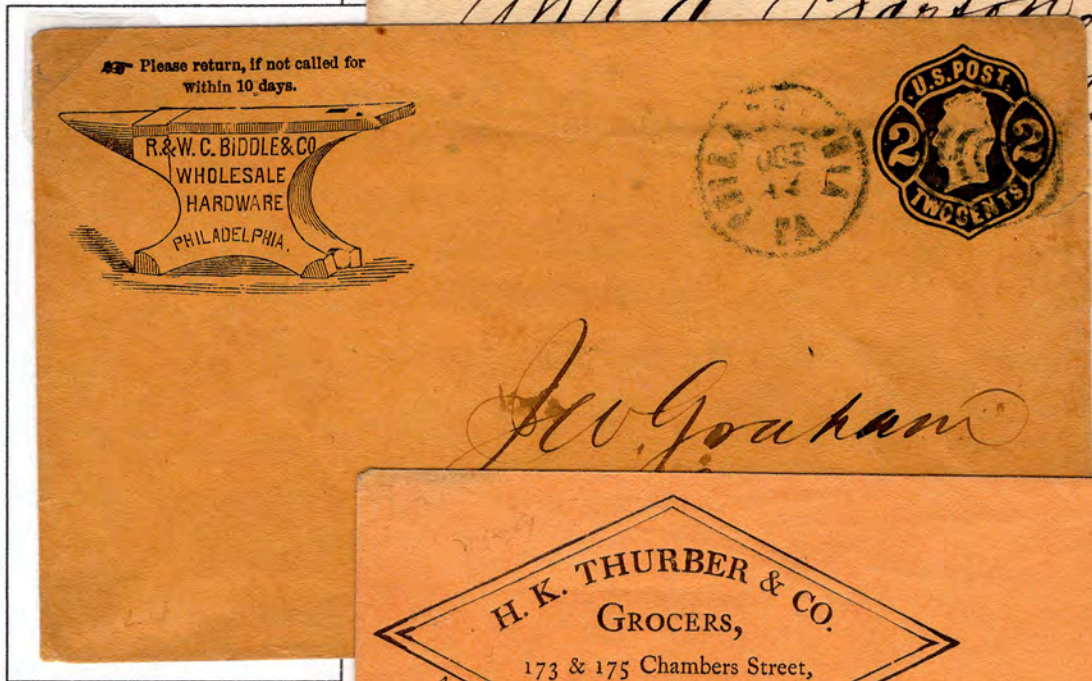 Please return, if not called for
within 10 days.
R. & W. C. BIDDLE & CO
WHOLESALE
HARDWARE
PHILADELPHIA.
PHILADELPHIA
PA
U.S. POST.
2 2
TWO CENTS
J W Graham
H. K. THURBER & CO.
GROCERS,
173 & 175 Chambers Street,